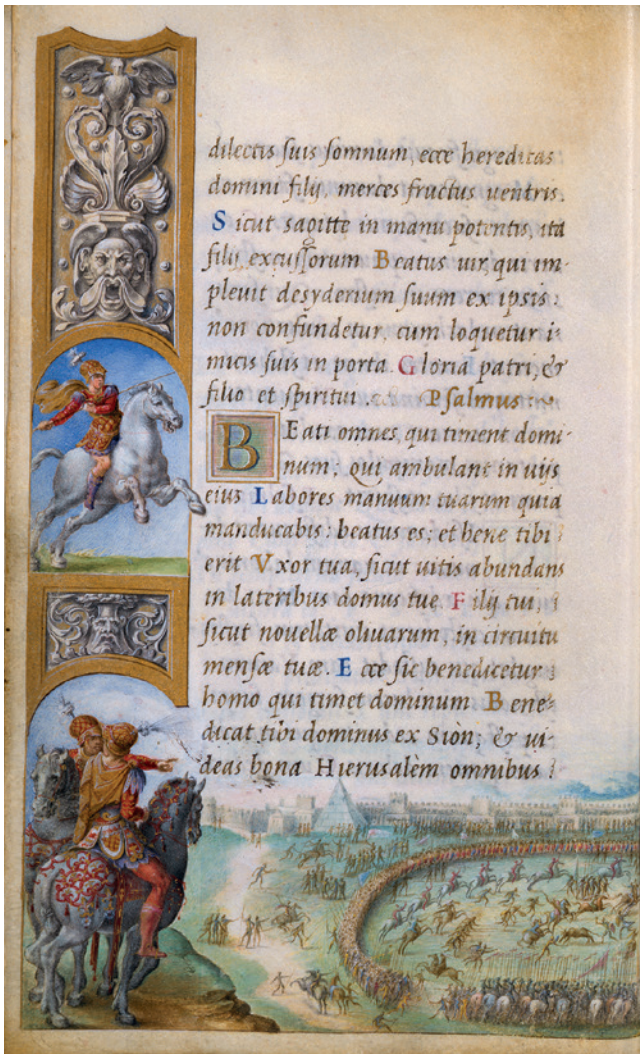 dilectis suis somnum, ecce hereditas
domini filij, merces fructus uentris.
Sicut sagitte in manu potentis, ita
filij excussorum Beatus uir, qui im-
pleuit desyderium suum ex ipsis:
non confundetur, cum loquetur i-
micis suis in porta. Gloria patri, &
filio et spiritui. Psalmus
BEati omnes, qui timent domi-
num; qui ambulant in uijs
eius Labores manuum tuarum quia
manducabis: beatus es; et bene tibi
erit Vxor tua, sicut uitis abundans
in lateribus domus tue. Filij tui,
sicut nouellæ oliuarum, in circuitu
mensæ tuæ. Ecce sic benedicetur
homo qui timet dominum Bene-
dicat tibi dominus ex Siòn; & ui-
deas bona Hierusalèm omnibus